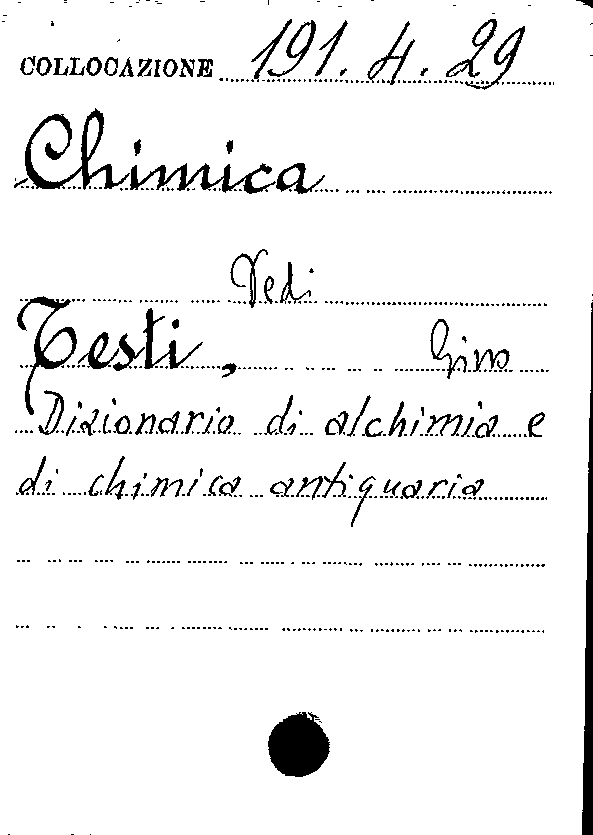 COLLOCAZIONE 191. 4. 29
Chimica
Vedi
Testi, Gino
Dizionario di alchimia e
di chimica antiquaria